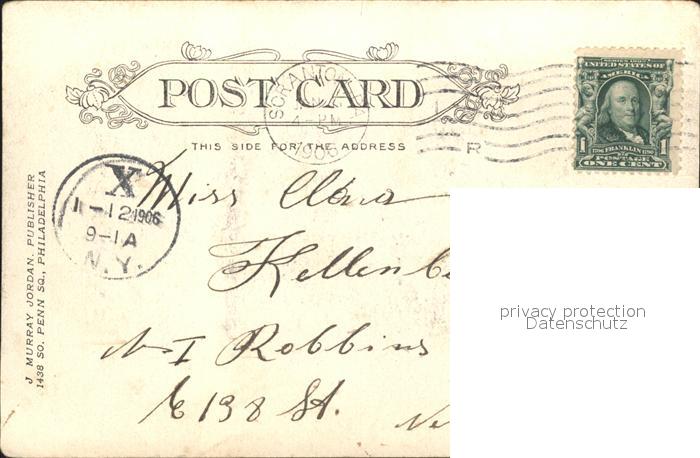 POST CARD
THIS SIDE FOR THE ADDRESS
SCRANTON
4-PM
1906
R
SERIES 1902
UNITED STATES OF
AMERICA
1 FRANKLIN 1
POSTAGE
ONE CENT
X
1-12 1906
9-1A
N.Y.
Miss Clara
Kellenbe
Robbins
E 138 St.
Ne
J MURRAY JORDAN, PUBLISHER
1438 SO. PENN SQ., PHILADELPHIA
privacy protection
Datenschutz